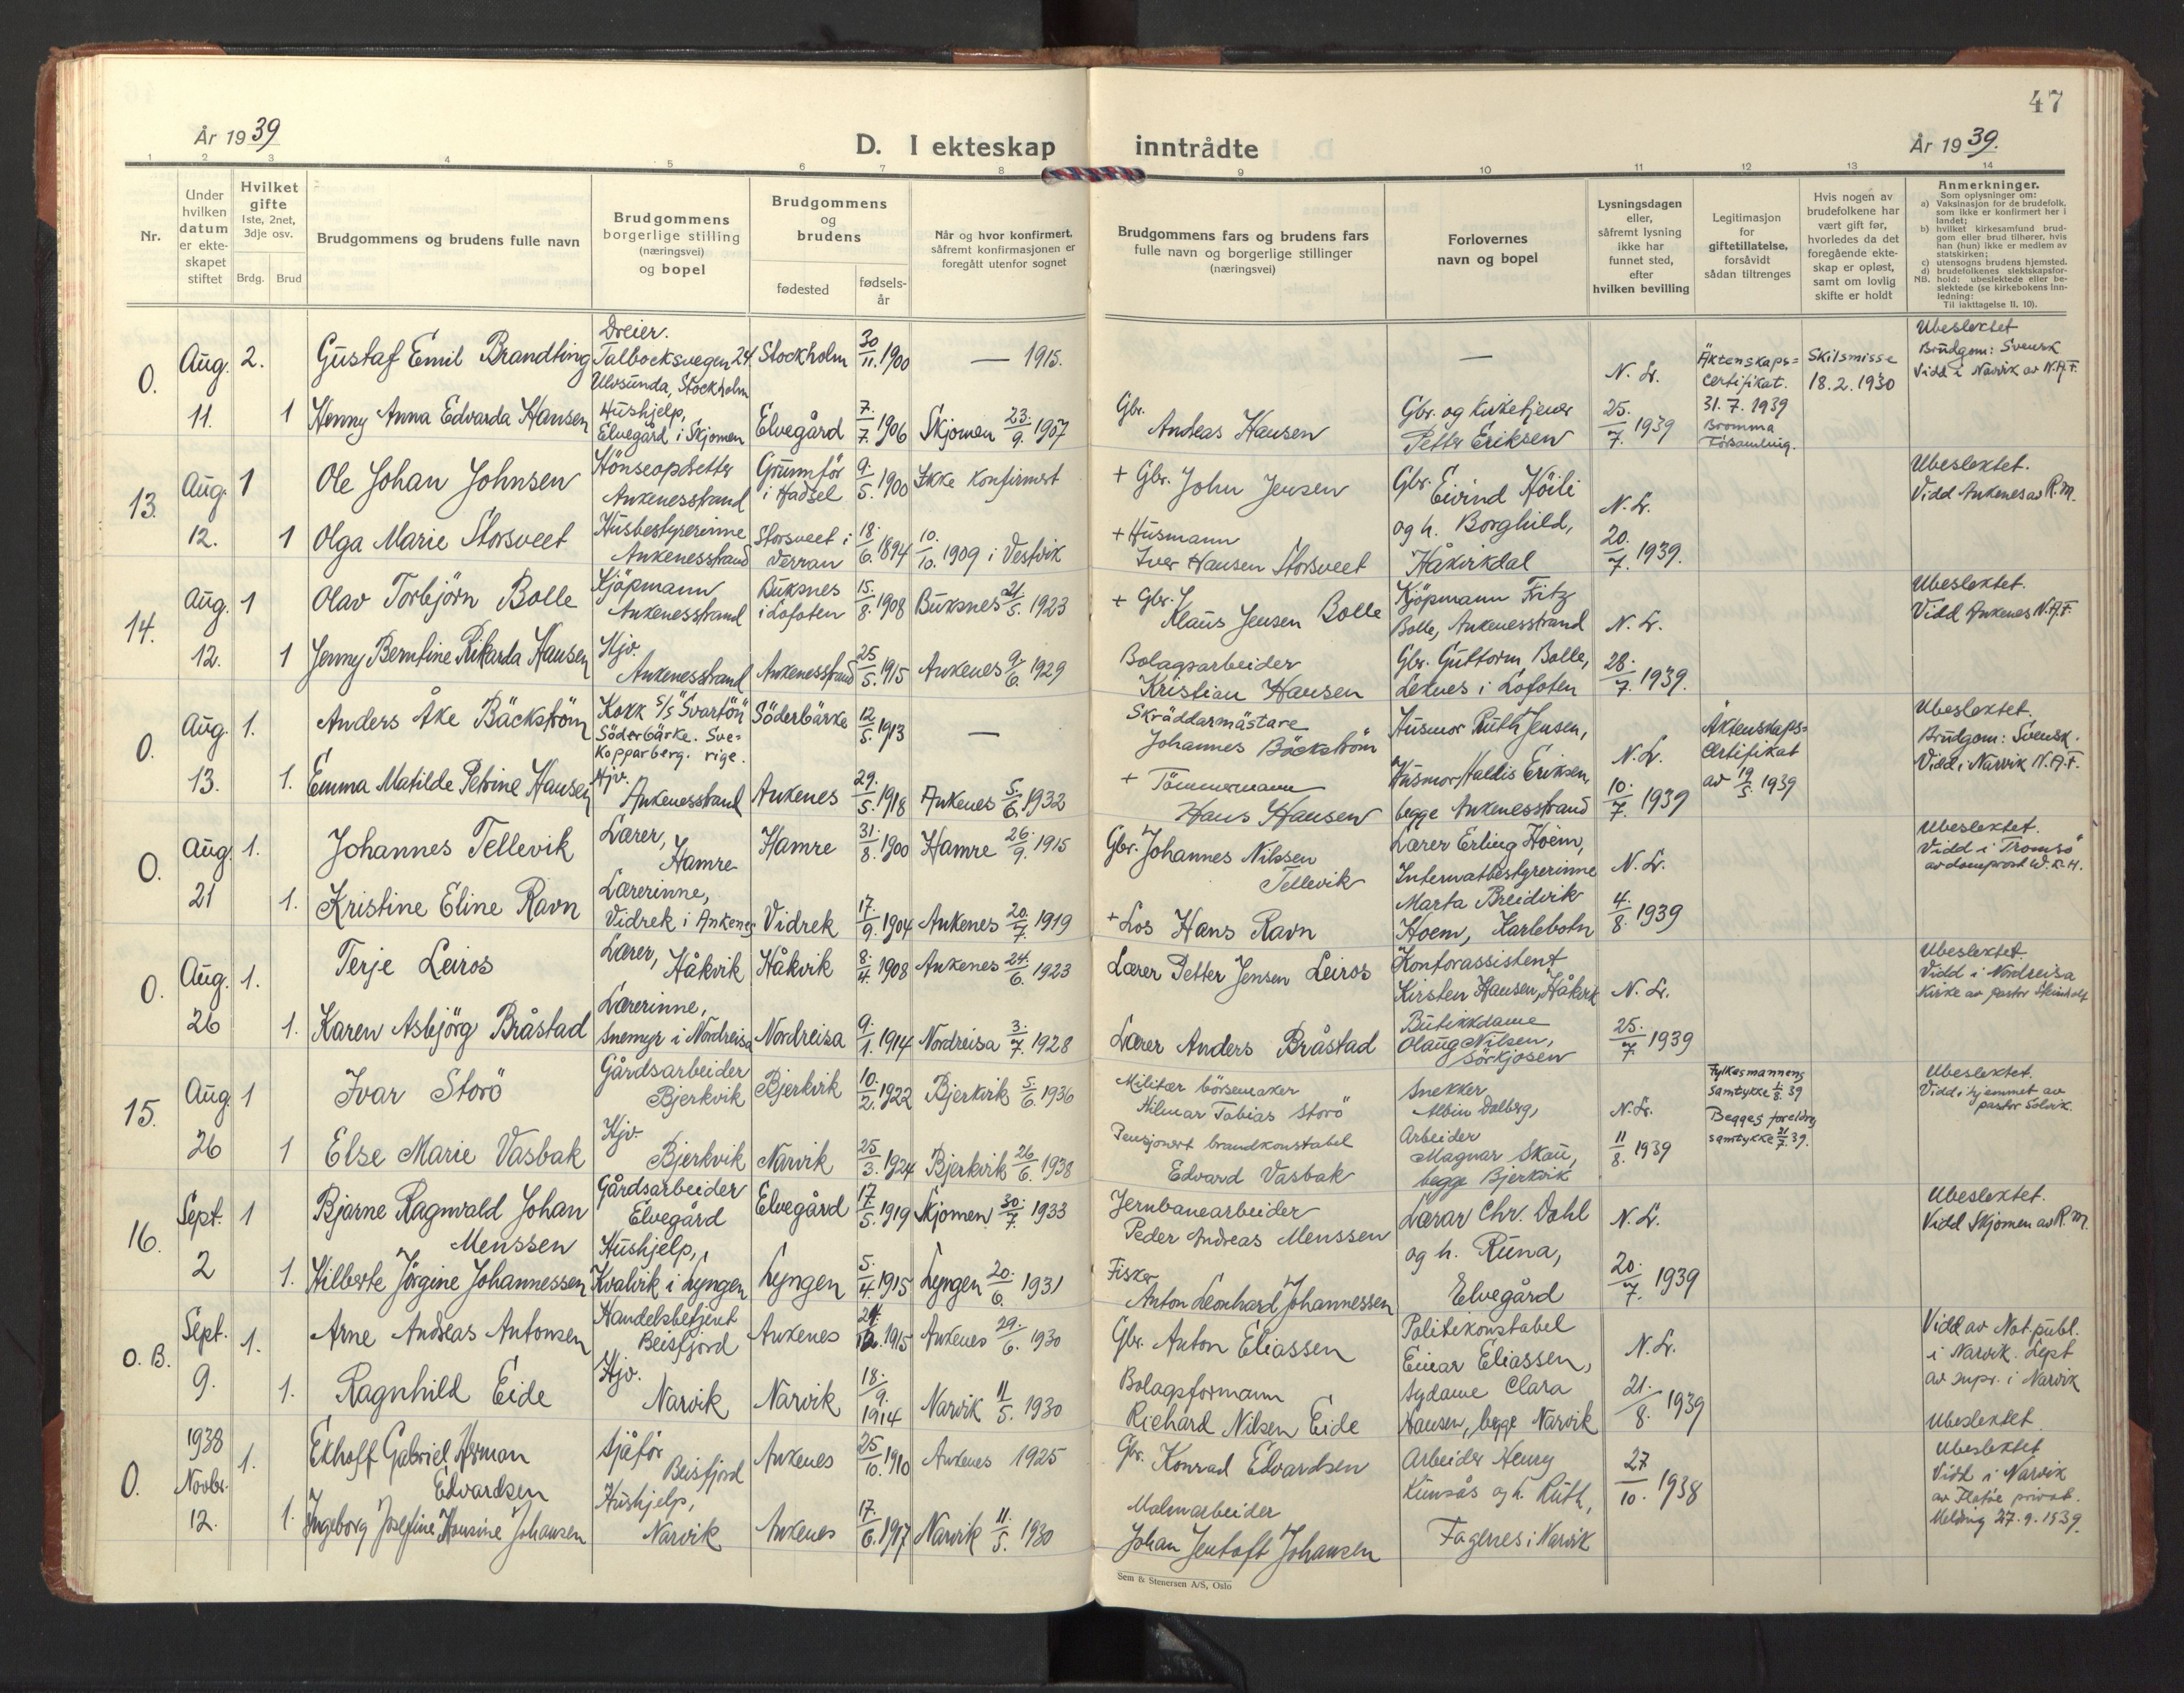 47
År 1939
D. I ekteskap inntrådte
År 1939.
1 2 3 4 5 6 7 8 9 10 11 12 13 14
Nr.
Under hvilken datum er ekteskapet stiftet
Hvilket gifte
1ste, 2net, 3dje osv.
Brdg. Brud
Brudgommens og brudens fulle navn
Brudgommens borgerlige stilling (næringsvei) og bopel
Brudgommens og brudens
fødested
fødselsår
Når og hvor konfirmert, såfremt konfirmasjonen er foregått utenfor sognet
Brudgommens fars og brudens fars fulle navn og borgerlige stillinger (næringsvei)
Forlovernes navn og bopel
Lysningsdagen eller, såfremt lysning ikke har funnet sted, efter hvilken bevilling
Legitimasjon for giftetillatelse, forsåvidt sådan tiltrenges
Hvis nogen av brudefolkene har vært gift før, hvorledes da det foregående ekteskap er opløst, samt om lovlig skifte er holdt
Anmerkninger.
Som oplysninger om:
a) Vaksinasjon for de brudefolk, som ikke er konfirmert her i landet;
b) hvilket kirkesamfund brudgom eller brud tilhører, hvis han (hun) ikke er medlem av statskirken;
c) utensogns brudens hjemsted.
d) brudefolkenes slektskapsforhold: ubeslektede eller beslektede (se kirkebokens Innledning:
NB. Til iakttagelse II, 10).
0. Aug. 11. 2. Gustaf Emil Brandting Dreier. Talbocksvegen 24. Ulvsunda, Stockholm Stockholm 30/11. 1900 — 1915. —
N. L. 25./7. 1939 Äktenskaps=certifikat. 31.7.1939 Bromma Församling. Skilsmisse 18.2.1930 Ubeslektet Brudgom: Svensk Vidd i Narvik av N.A.F.
1 Henny Anna Edvarda Hansen Hushjelp, Elvegård i Skjomen Elvegård 7./7. 1906 Skjomen 23./9. 1907 Gbr. Andreas Hansen Gbr. og kirketjener Petter Eriksen
13. Aug. 12. 1 Ole Johan Johnsen Hönseopdretter Ankenesstrand i Hadsel 9./5. 1900 Ikke konfirmert + Gbr. John Jensen Gbr. Eivind Höili og h. Borghild, Håkvikdal
N. L. 20./7. 1939. Ubeslektet. Vidd Ankenes av R.M.
1 Olga Marie Storsveet Husbestyrerinne Ankenesstrand Storsveet i Verran 18./6. 1894 10./10. 1909 i Vestvik + Husmann Iver Hansen Storsveet
14. Aug. 12. 1 Olav Torbjörn Bolle Kjöpmann Ankenesstrand Buksnes i Lofoten 15./8. 1908 Buksnes 21/5. 1923 + Gbr. Klaus Jensen Bolle Kjöpmann Fritz Bolle, Ankenesstrand
N. L. 28./7. 1939. Ubeslektet. Vidd Ankenes N.A.F.
1 Jenny Berntine Rikarda Hansen Hjv. Ankenesstrand Ankenesstrand 25/5. 1915 Ankenes 9/6. 1929 Bolagsarbeider Kristian Hansen Gbr. Guttorm Bolle, Leknes i Lofoten
0. Aug. 13. 1. Anders Åke Bäckström Kokk s/s "Svartön" Söderbärke. Kopparberg. Sverige. Söderbärke 12/5. 1913 — Skräddarmästare Johannes Bäckström Husmor Ruth Jensen,
N. L. 10./7. 1939 Äktenskaps=certifikat av 19/5. 1939 Ubeslektet. Brudgom: Svensk. Vidd i Narvik N.A.F.
1. Emma Matilde Petrine Hansen Hjv. Ankenesstrand Ankenes 29./5. 1918 Ankenes 5./6. 1932 + Tömmermann Hans Hansen Husmor Haldis Eriksen, begge Ankenesstrand
0. Aug. 21 1. Johannes Tellevik Lærer, Hamre Hamre 31./8. 1900 Hamre 26./9. 1915 Gbr. Johannes Nilssen Tellevik Lærer Erling Hoem,
N. L. 4./8. 1939 Ubeslektet. Vidd i Tromsö av domprost W.K.H.
1. Kristine Eline Ravn Lærerinne, Vidrek i Ankenes Vidrek 17./9. 1904 Ankenes 20./7. 1919 + Los Hans Ravn Internatbestyrerinne Marta Breidvik Hoem, Karlebotn
0. Aug. 26 1. Terje Leiros Lærer, Håkvik Håkvik 8./4. 1908 Ankenes 24./6. 1923 Lærer Petter Jensen Leiros Kontorassistent Kirsten Hansen, Håkvik
N. L. 25./7 1939 Ubeslektet. Vidd i Nordreisa Kirke av pastor
1. Karen Asbjörg Bråstad Lærerinne, Snemyr i Nordreisa Nordreisa 9./1. 1914 Nordreisa 3./7. 1928 Lærer Anders Bråstad Butikkdame Olaug Nilsen, Sörkjosen
15. Aug 26 1 Ivar Storö Gårdsarbeider Bjerkvik Bjerkvik 10./2. 1922 Bjerkvik 5./6. 1936 Militær börsemaker Hilmar Tobias Storö Snekker Albin Dalberg,
N. L. 11/8. 1939 Fylkesmannens samtykke 1./8. 39 Begges foreldres samtykke 21/7. 39. Ubeslektet. Vidd i hjemmet av pastor Solvik.
1 Else Marie Vasbak Hjv. Bjerkvik Narvik 25/3. 1924 Bjerkvik 26/6. 1938 Pensjonert brandkonstabel Edvard Vasbak Arbeider Magnar Skau, begge Bjerkvik
16. Sept. 2 1 Bjarne Ragnvald Johan Menssen Gårdsarbeider Elvegård Elvegård 17/5. 1919 Skjomen 30./7 1933 Jernbanearbeider Peder Andreas Menssen Lærar Chr. Dahl og h. Runa, Elvegård
N. L. 20./7. 1939 Ubeslektet. Vidd Skjomen av R.M.
1. Hilberte Jörgine Johannessen Hushjelp, Kvalvik i Lyngen Lyngen 5./4. 1915 Lyngen 20./6. 1931 Fisker Anton Leonhard Johannessen
0. B. Sept. 9. 1. Arne Andreas Antonsen Handelsbetjent Beisfjord Ankenes 24./12. 1915 Ankenes 29./6. 1930 Gbr. Anton Eliassen Politikonstabel Einar Eliassen,
N. L. 21./8. 1939 Vidd av Not.publ. i Narvik. av supr. i Narvik Ubeslektet
1. Ragnhild Eide Hjv. Narvik Narvik 18./9. 1914 Narvik 11/5. 1930 Bolagsformann Richard Nilsen Eide Sydame Clara Hansen, begge Narvik
0. 1938 Novbr. 12. 1. Ekhoff Gabriel Herman Edvardsen Sjåför Beisfjord Ankenes 25/10. 1910 Ankenes 1925 Gbr. Konrad Edvardsen Arbeider Henry og h. Ruth, Fagernes i Narvik
27/10. 1938 Ubeslektet Vidd i Narvik av privat. Melding 27.9.1939.
1. Ingeborg Josefine Hansine Johansen Hushjelp, Narvik Ankenes 17./6. 1917 Narvik 11./5. 1930 Malmarbeider Johan Jentoft Johansen
Sem & Stenersen A/S, Oslo